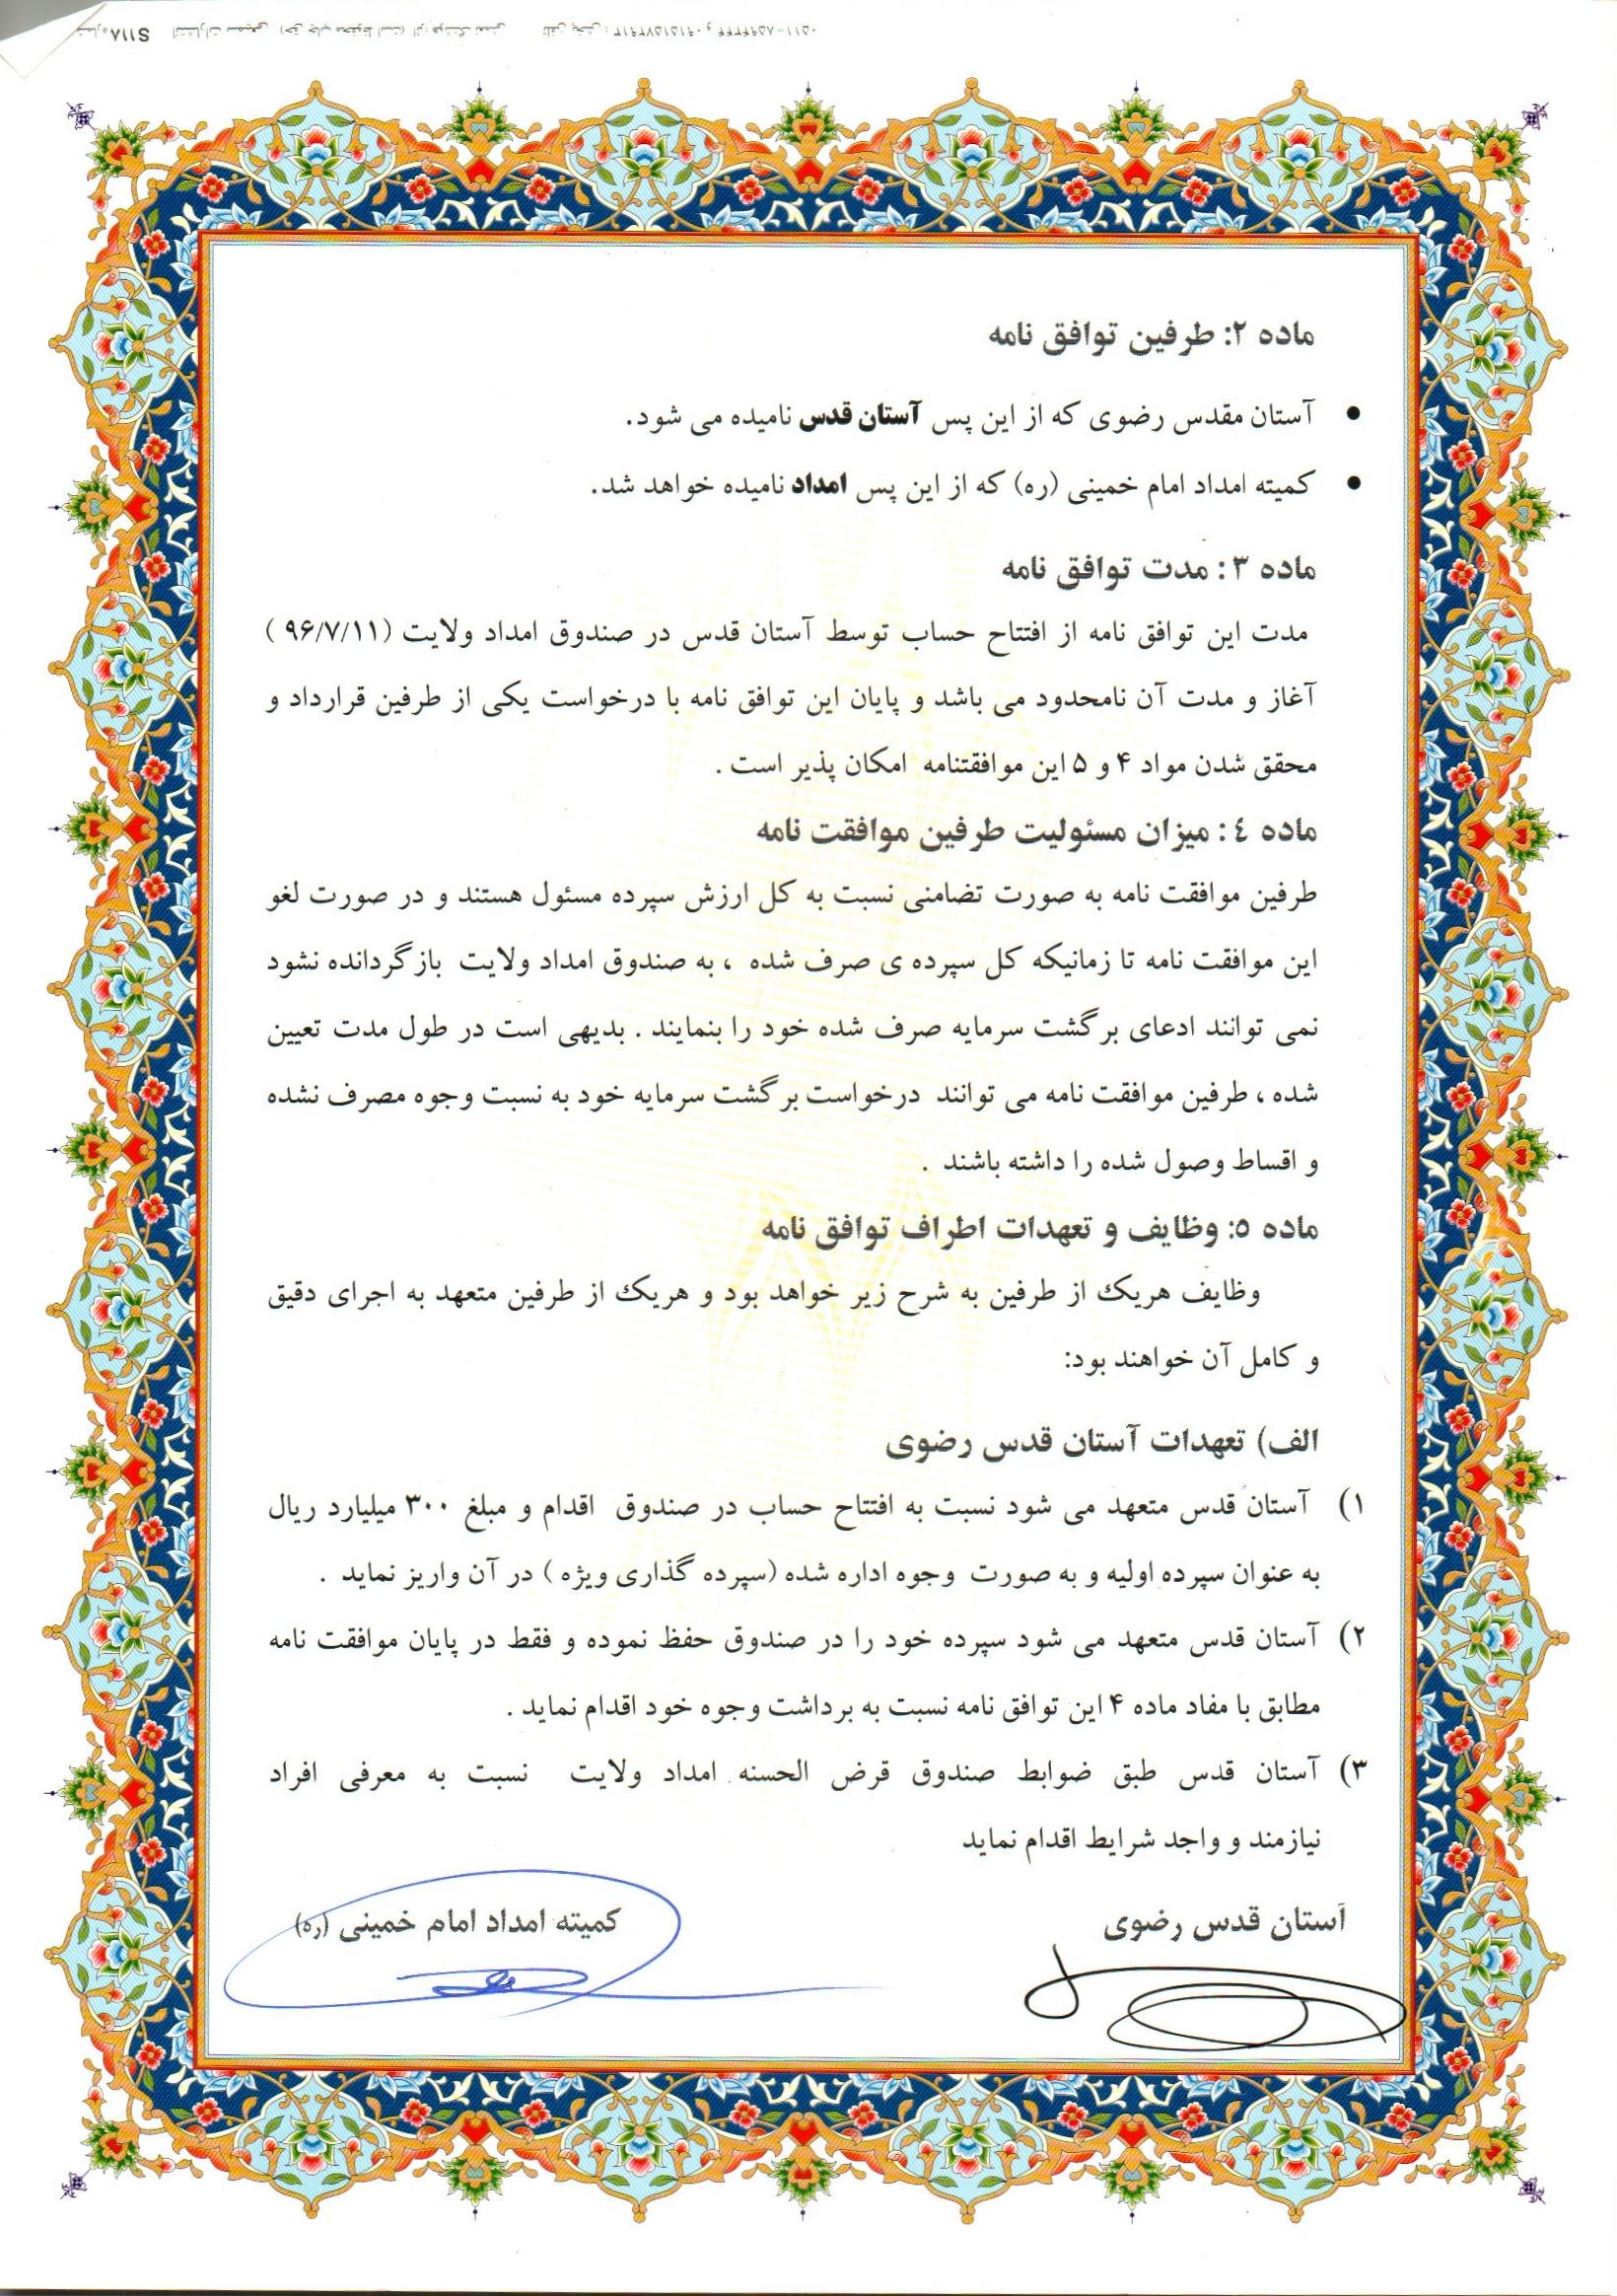 S۱۱۸
ماده ۲: طرفین توافق نامه
• آستان مقدس رضوی که از این پس آستان قدس نامیده می شود.
• کمیته امداد امام خمینی (ره) که از این پس امداد نامیده خواهد شد.
ماده ۳: مدت توافق نامه
مدت این توافق نامه از افتتاح حساب توسط آستان قدس در صندوق امداد ولایت (۹۶/۷/۱۱ )
آغاز و مدت آن نامحدود می باشد و پایان این توافق نامه با درخواست یکی از طرفین قرارداد و
محقق شدن مواد ۴ و ۵ این موافقتنامه امکان پذیر است .
ماده ٤: میزان مسئولیت طرفین موافقت نامه
طرفین موافقت نامه به صورت تضامنی نسبت به کل ارزش سپرده مسئول هستند و در صورت لغو
این موافقت نامه تا زمانیکه کل سپرده ی صرف شده ، به صندوق امداد ولایت بازگردانده نشود
نمی توانند ادعای برگشت سرمایه صرف شده خود را بنمایند . بدیهی است در طول مدت تعیین
شده ، طرفین موافقت نامه می توانند درخواست برگشت سرمایه خود به نسبت وجوه مصرف نشده
و اقساط وصول شده را داشته باشند .
ماده ٥: وظایف و تعهدات اطراف توافق نامه
وظایف هریک از طرفین به شرح زیر خواهد بود و هریک از طرفین متعهد به اجرای دقیق
و کامل آن خواهند بود:
الف) تعهدات آستان قدس رضوی
۱) آستان قدس متعهد می شود نسبت به افتتاح حساب در صندوق اقدام و مبلغ ۳۰۰ میلیارد ریال
به عنوان سپرده اولیه و به صورت وجوه اداره شده (سپرده گذاری ویژه ) در آن واریز نماید .
۲) آستان قدس متعهد می شود سپرده خود را در صندوق حفظ نموده و فقط در پایان موافقت نامه
مطابق با مفاد ماده ۴ این توافق نامه نسبت به برداشت وجوه خود اقدام نماید .
۳) آستان قدس طبق ضوابط صندوق قرض الحسنه امداد ولایت نسبت به معرفی افراد
نیازمند و واجد شرایط اقدام نماید
آستان قدس رضوی
کمیته امداد امام خمینی (ره)